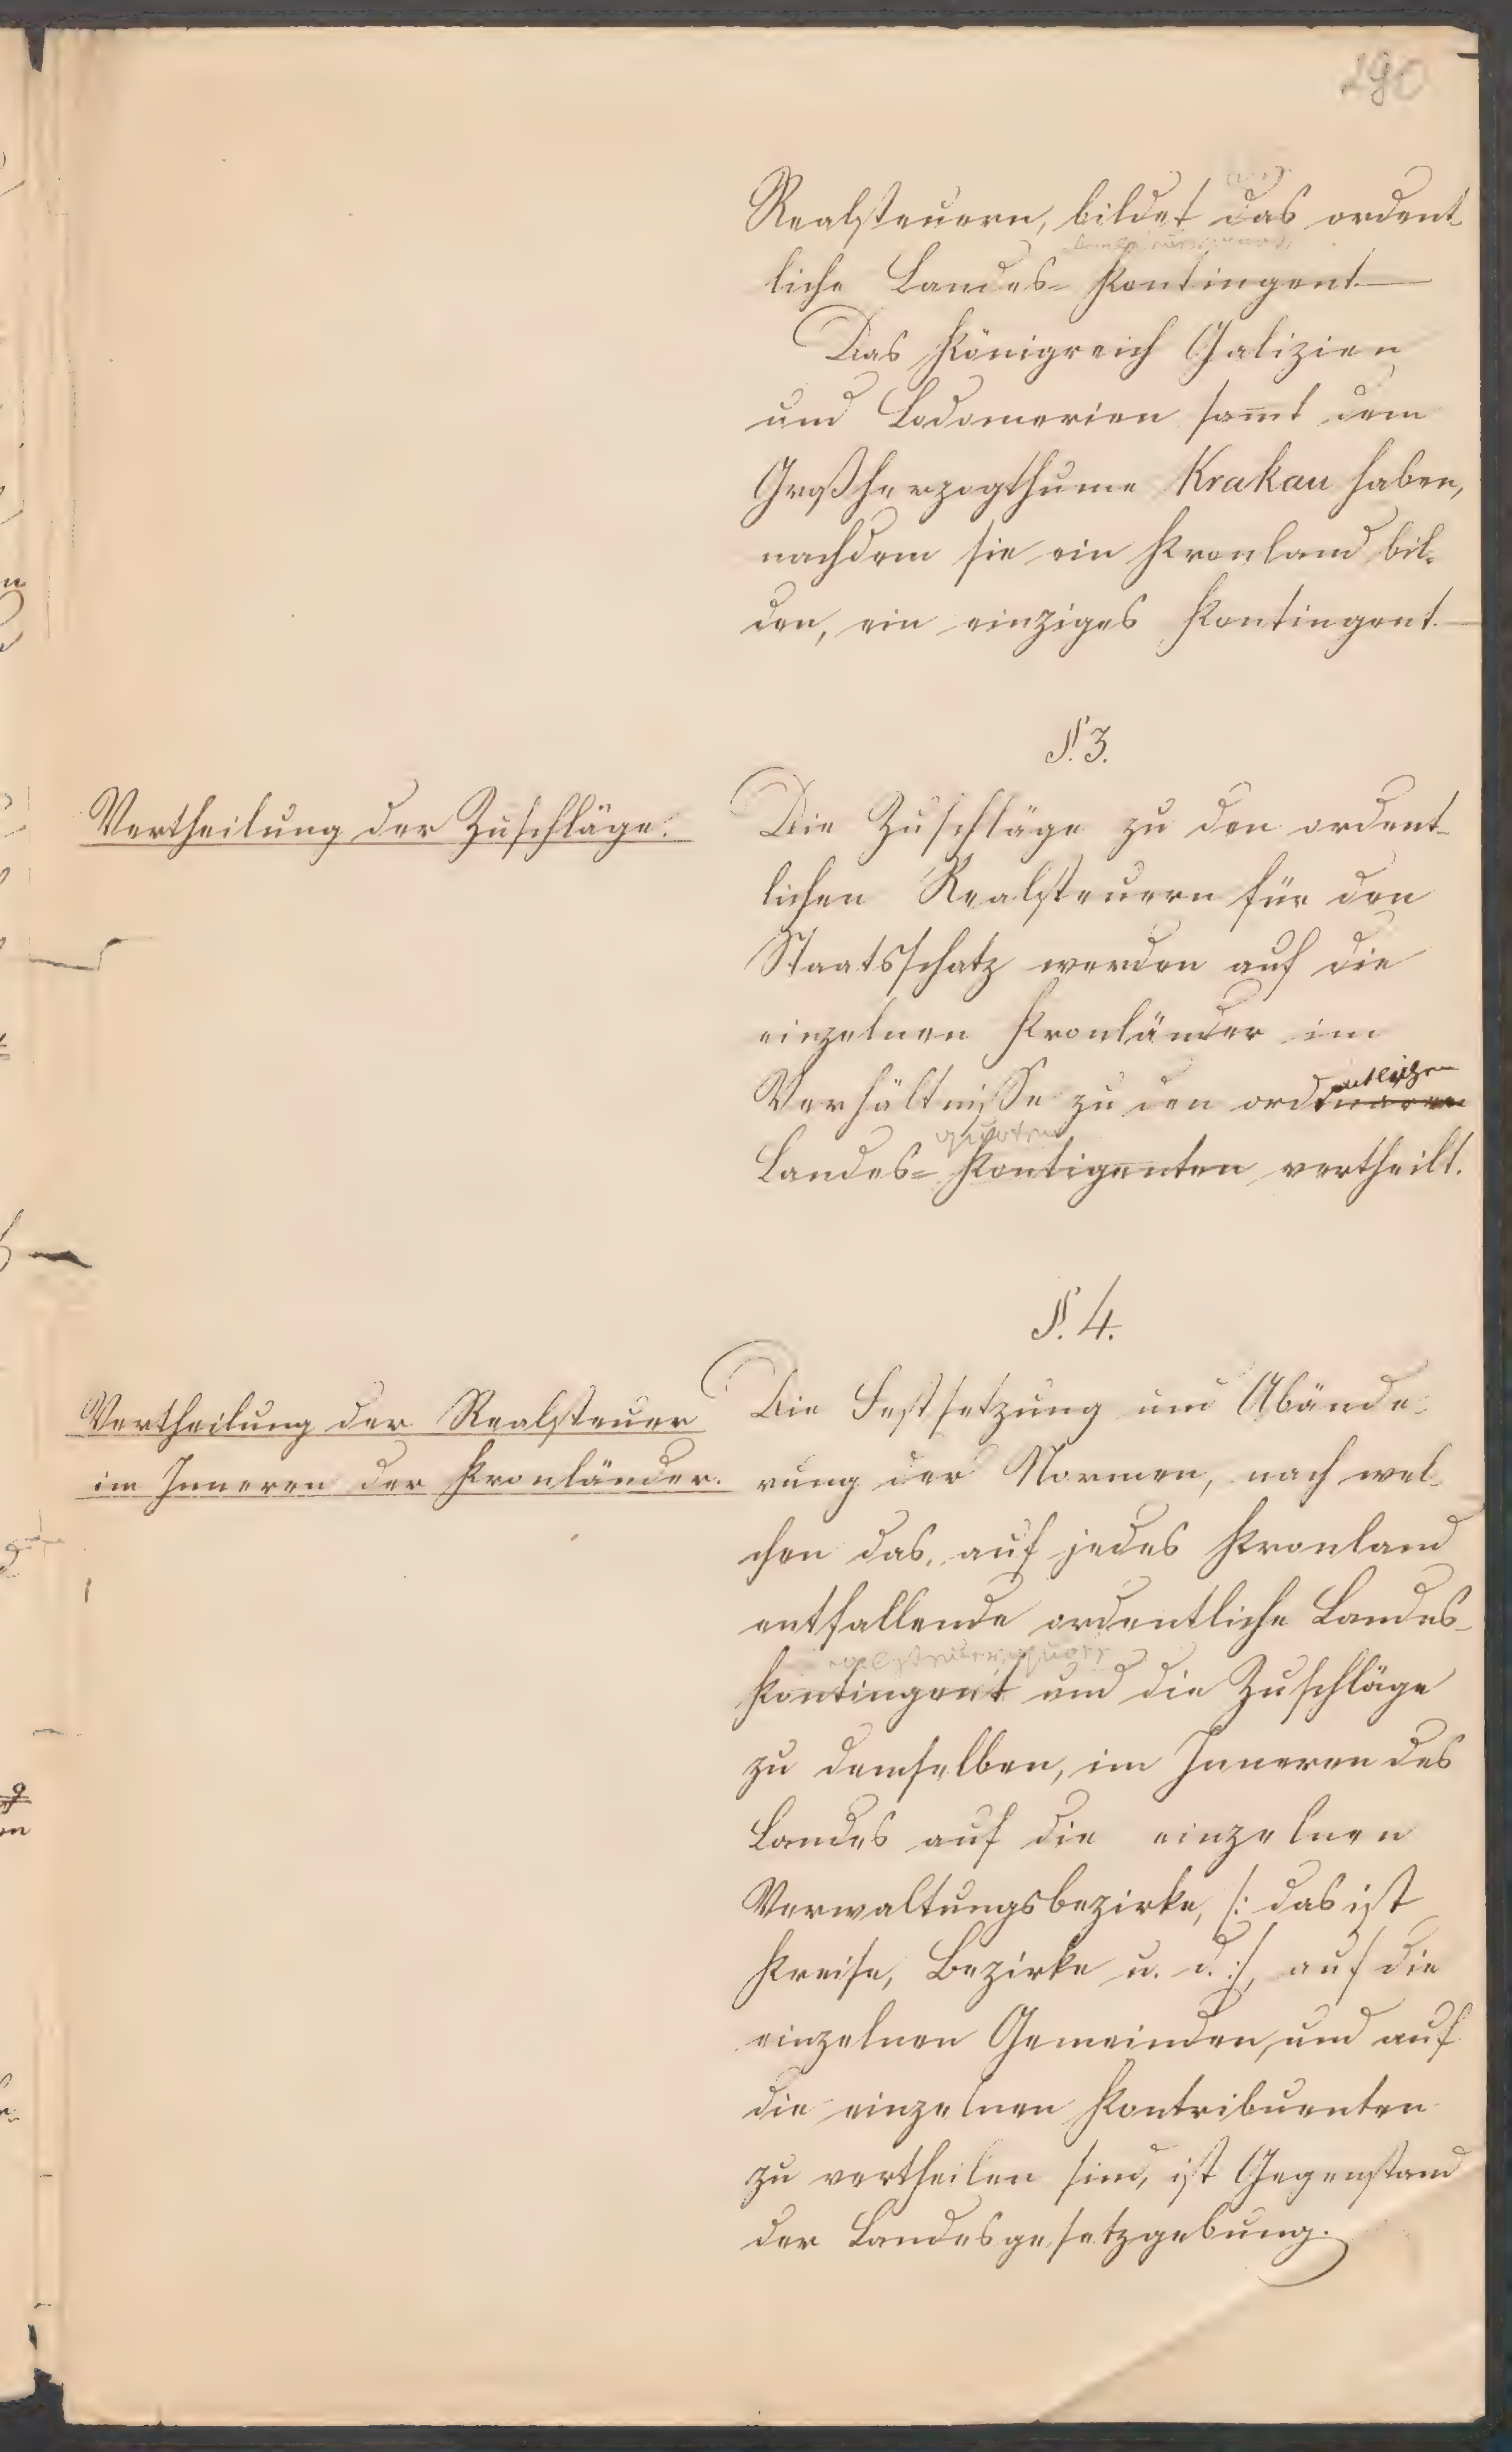 290
Realsteuern, bildet das ordent-
liche Landes-Kontingent.
Das Königreich Galizien
und Lodomerien samt dem
Großherzogthume Krakau haben,
nachdem sie ein Kronland bil-
den, ein einziges Kontingent.
§. 3.
Vertheilung der Zuschläge.
Die Zuschläge zu den ordent-
lichen Realsteuern für den
Staatsschatz werden auf die
einzelnen Kronländer im
entlichen
Verhältnisse zu den ord
quoten
Landes-Kontigenten vertheilt.
§. 4.
Vertheilung der Realsteuer
im Inneren der Kronländer.
Die Festsetzung und Abände-
rung der Normen, nach wel-
chen das, auf jedes Kronland
entfallende ordentliche Landes-
Kontingent und die Zuschläge
zu demselben, im Inneren des
Landes auf die einzelnen
Verwaltungsbezirke, /: das ist
Kreise, Bezirke u. d. :/, auf die
einzelnen Gemeinden, und auf
die einzelnen Kontribuenten
zu vertheilen sind, ist Gegenstand
der Landesgesetzgebung.